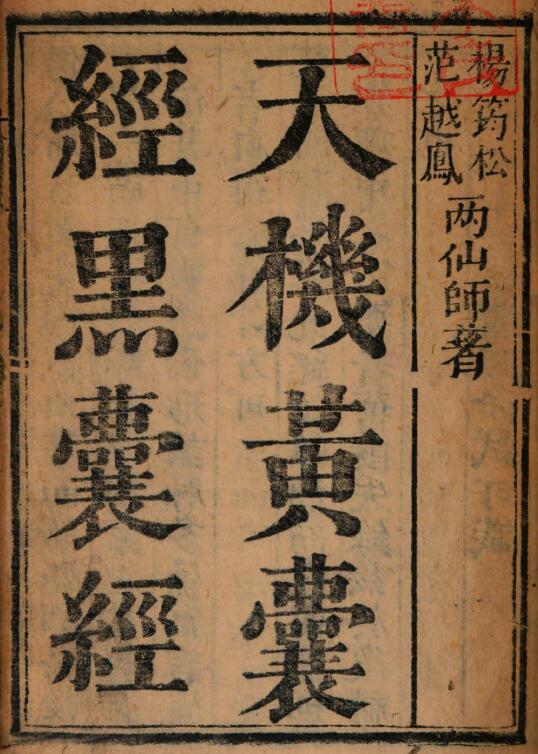 楊筠松
范越鳳
两仙師著
天機黃囊
經黑囊經